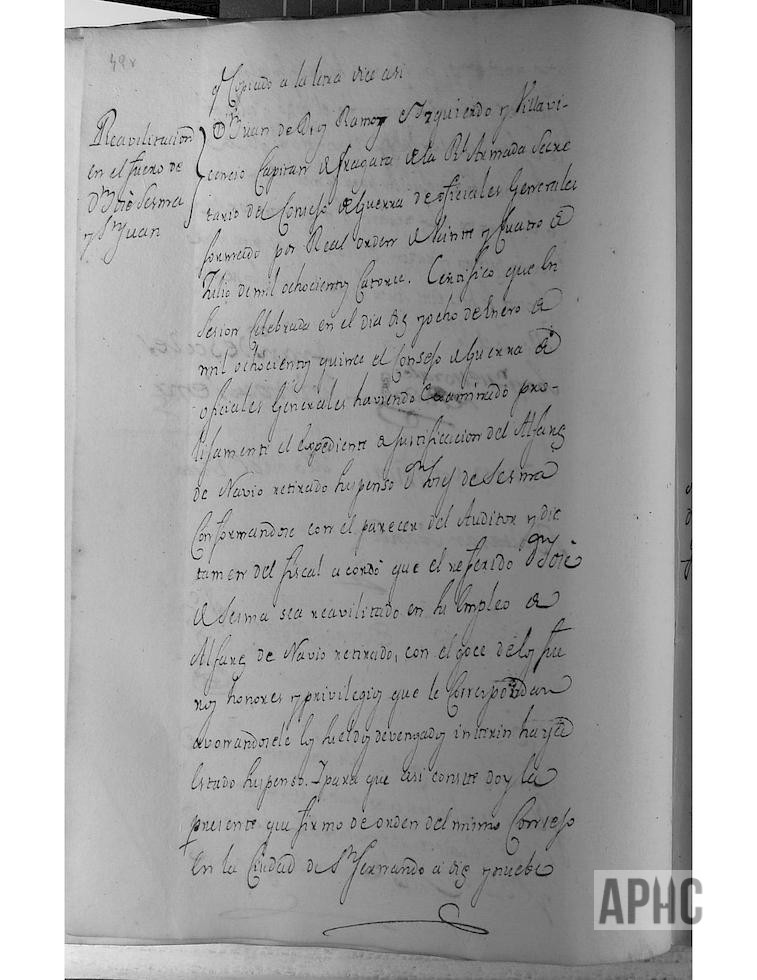 49v
y Copiado a la letra dice asi
Reavilitacion
en el fuero de
Dn José Sesma
y Sn Juan
Dn Juan de Dios Ramos Yzquierdo y Villavi-
cencio Capitan de fragata de la Rl Armada Secre
tario del Consejo de Guerra de oficiales Generales
formado por Real orden de Veinte y Cuatro de
Julio de mil ochocientos Catorce. Certifico que En
Sesion Celebrada en el dia diez y ocho de Enero de
mil ochocientos quince el Consejo de Guerra de
oficiales Generales haviendo Examinado pro-
lijamente el expediente de justificacion del Alferez
de Navio retirado suspenso Dn Josef de Sesma
Conformandose con el parecer del Auditor y dic
tamen del fiscal acordó que el referido Dn José
de Sesma sea reavilitado en su Empleo de
Alferez de Navio retirado, con el goce de los fue
ros honores y privilegios que le Correspondan
avonandosele los sueldos devengados interin haya
Estado suspenso. Y para que asi conste doy la
presente que firmo de orden del mismo Consejo
En la Ciudad de Sn Fernando a diez y nuebe
APHC